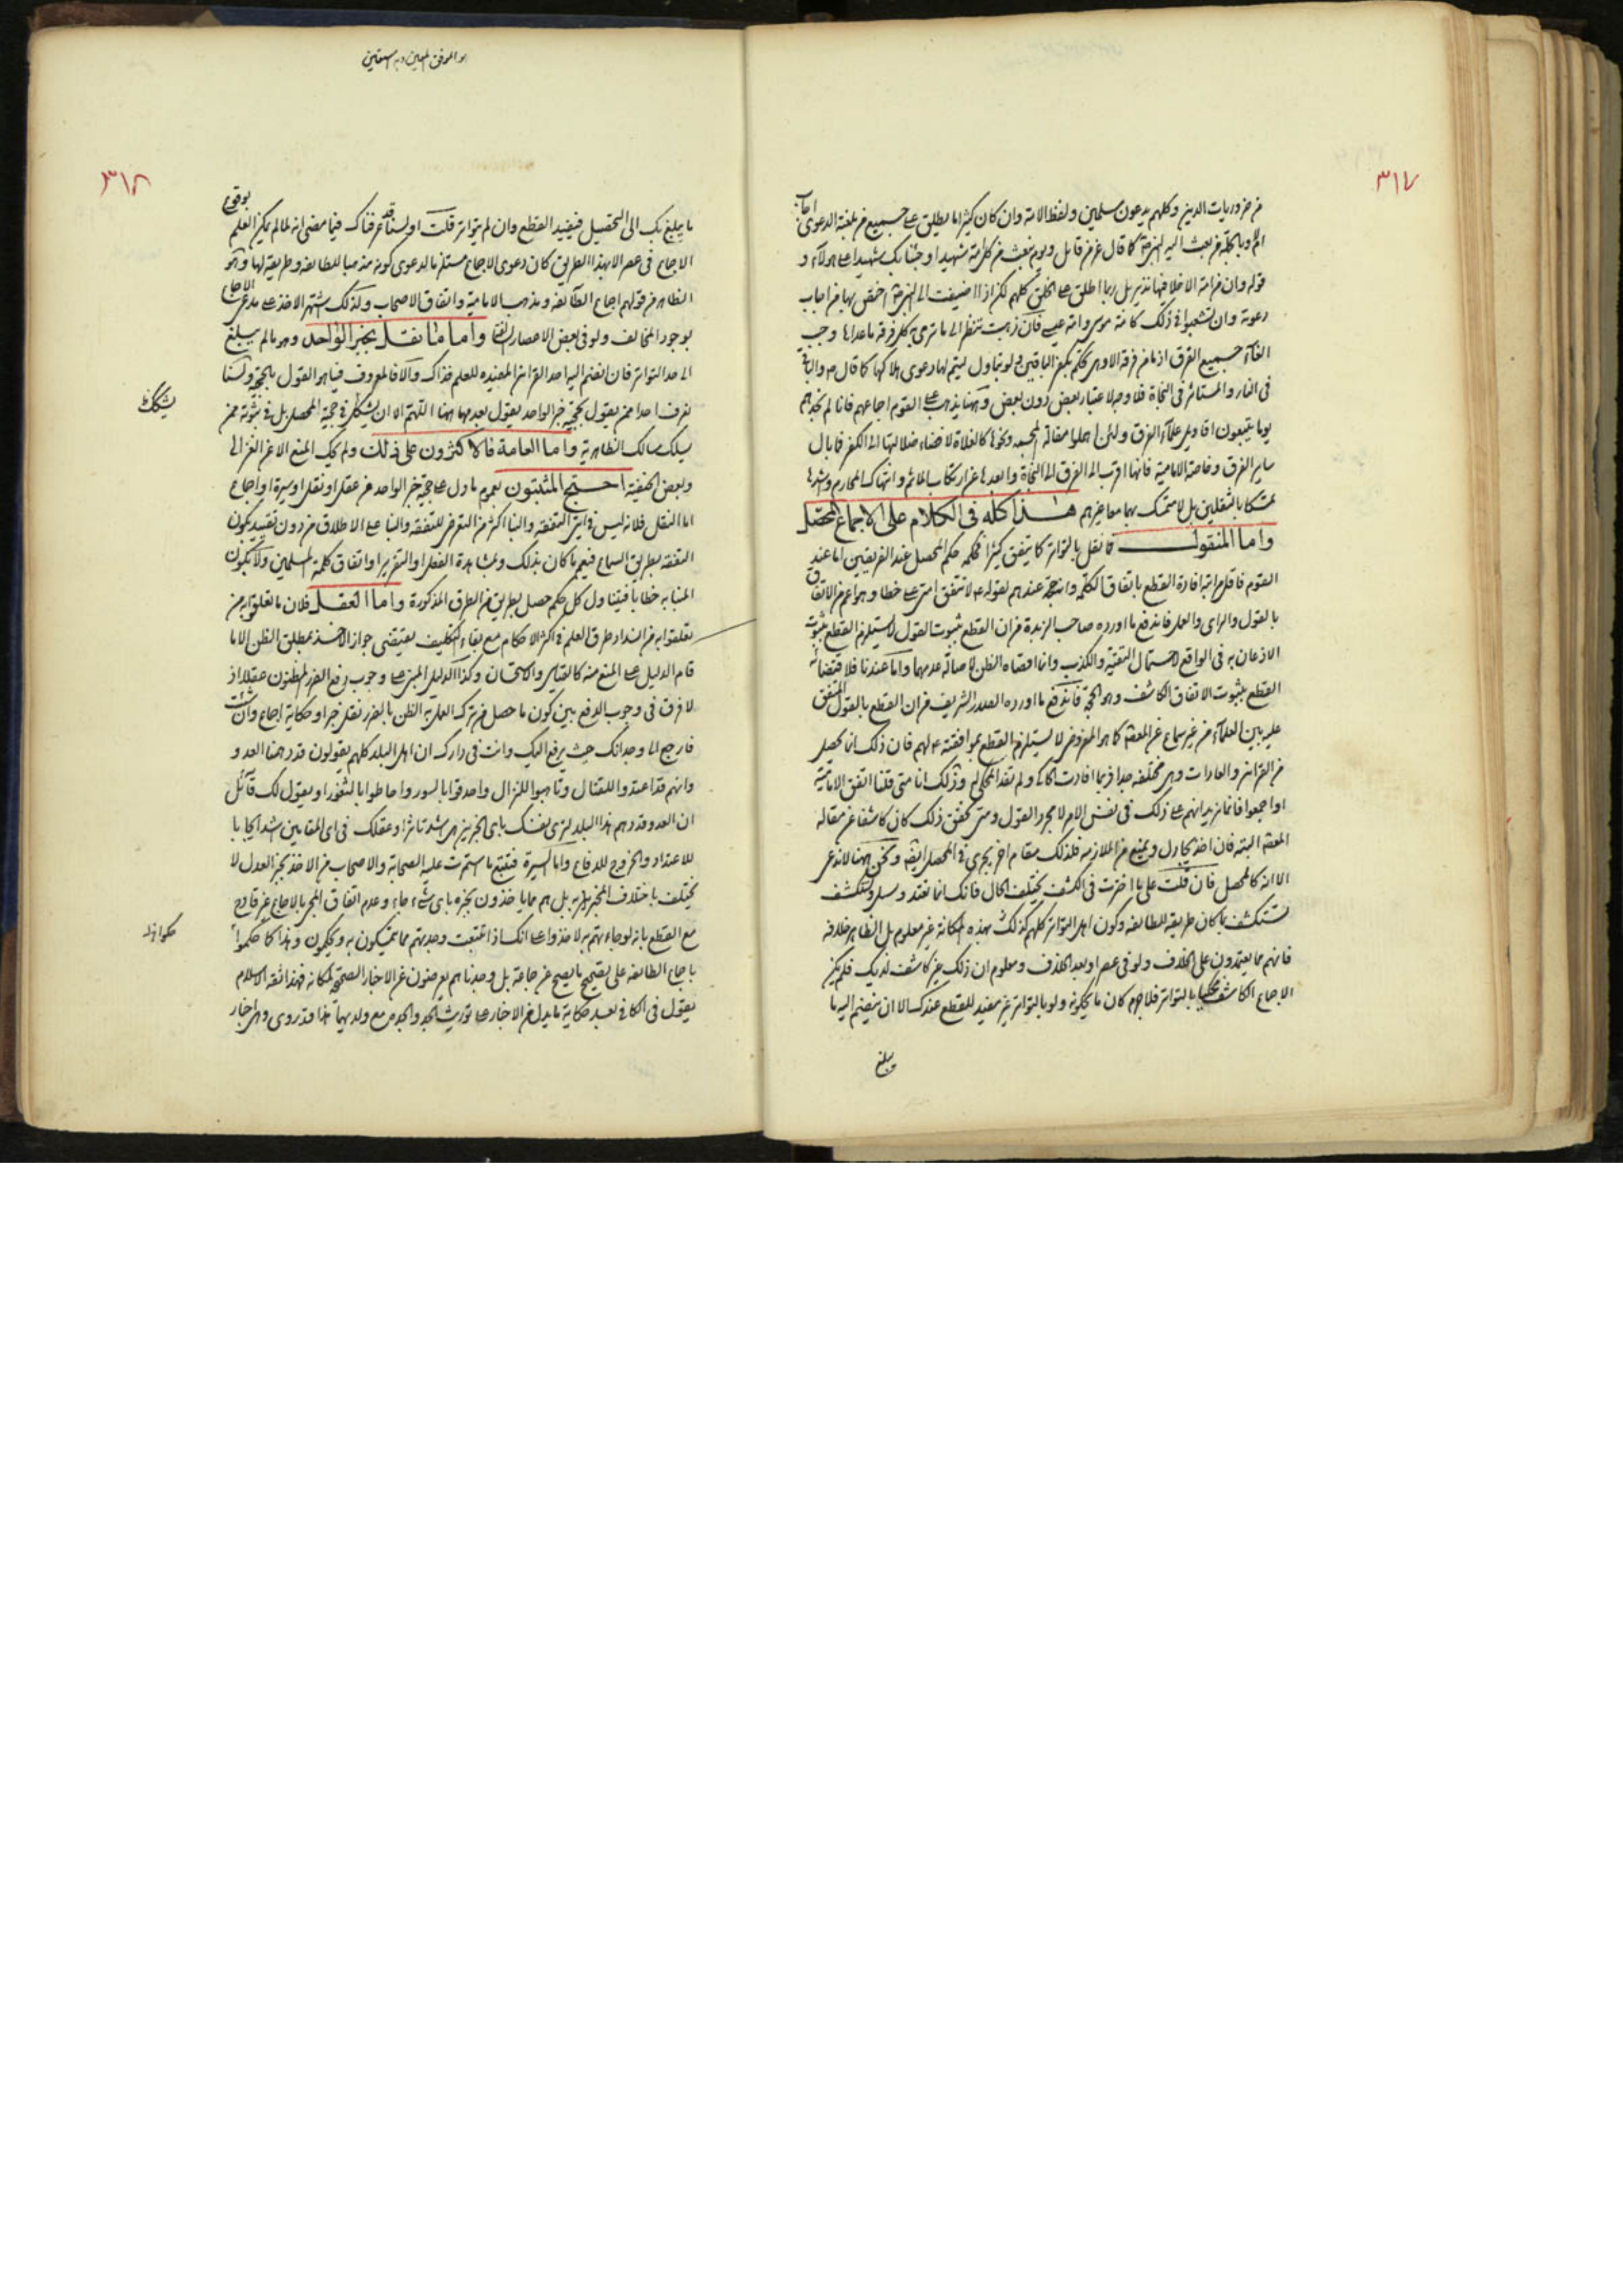 ٣١٧
من ضروريات الدين وكلهم يدعون مسلمين ولفظ الامة وان كان كثيرا ما يطلق على جميع من بلغته الدعوى
وبالجملة من بعث اليه كما قال عز من قائل ويوم نبعث من كل امة شهيدا وجئنا بك شهيدا على هولاء و
قوله وان من امة الا خلا فيها نذير بل ربما اطلق على الخلق كلهم لكن اذا اضيفت الى اختص بها من اجاب
دعوته وان تشعبوا في ذلك كامة موسى وامة عيسى فان ذهبت تنظر الى ما ترمى به كل فرقة ما عداها وجب
الغاء جميع الفرق اذ ما من فرقة الا وهي تحكم بكفر الباقين ولو بتاويل ليتم لها دعوى هلاكها كما قال والباقي
في النار والمستاثر في النجاة فلا وجه لاعتبار بعض دون بعض وههنا يذهب على القوم اجماعهم فانا لم نجدهم
يوما يتتبعون اقاويل علماء الفرق ولئن اهملوا مقالة المجسمة ونحوها كالغلاة لافضاء ضلالتها الى الكفر فما بال
ساير الفرق وخاصة الامامية فانها اقرب الفرق الى النجاة وابعدها عن ارتكاب الماثم وانتهاك المحارم واشدها
تمسكا بالثقلين بل لا متمسك بهما معا غيرهم هذا كله في الكلام على الاجماع المحصل
واما المنقول فما نقل بالتواتر كما يتفق كثيرا فحكمه حكم المحصل عند الفريقين اما عند
القوم فاقل مراتبه افادة القطع باتفاق الكلمة وانه حجة عندهم لقوله لا تتفق امتي على خطا وهو اعم من الاتفاق
بالقول والراى والعمل فاندفع ما اورده صاحب الزبدة من ان القطع بثبوت القول لا يستلزم القطع بثبوت
الاذعان به في الواقع لاحتمال التقية والكذب وانما اقصاه الظن لاصالة عدمها واما عندنا فلاقتضائه
القطع بثبوت الاتفاق الكاشف وهو الحجة فاندفع ما اورده الصدر الشريف من ان القطع بالقول المتفق
عليه بين العلماء من غير سماع عن المعصوم كما هو المفروض لا يستلزم القطع بموافقته لهم فان ذلك انما يحصل
من القرائن والعادات وهي مختلفة جدا فربما افادت الحاكي ولم تفد المحكى له وذلك انا متى قلنا اتفق الامامية
او اجمعوا فانما نريد انهم على ذلك في نفس الامر لا مجرد القول ومتى تحقق ذلك كان كاشفا عن مقالة
المعصوم البتة فان اخذ يجادل ويمنع من الملازمة فلذلك مقام اخر يجرى في المحصل ايضا ونحن ههنا لا ندعى
الا انه كالمحصل فان قلت على ما اخترت في الكشف يختلف الحال فانك انما تعتد
تستكشف ما كان طريقة للطائفة وكون اهل التواتر كلهم كذلك بهذه المكانة غير معلوم بل الظاهر خلافه
فانهم مما يعتمدون على الخلاف ولو في عصر او بعد الخلاف ومعلوم ان ذلك غير كاشف لديك فلم يكن
الاجماع الكاشف محكيا بالتواتر فلا جرم كان ما يحكونه ولو بالتواتر غير مفيد للقطع عندك الا ان ينضم اليه ما
يبلغ
٣١٨
ما يبلغ بك الى التحصيل فيفيد القطع وان لم يتواتر قلت اولسنا قد عرفناك فيما مضى انه لما لم يكن العلم بوقوع
الاجماع في عصر الا بهذا الطريق كان دعوى الاجماع مستلزما لدعوى كونه مذهبا للطائفة وطريقة لها وهو
الظاهر من قولهم اجماع الطائفة ومذهب الامامية واتفاق الاصحاب ولذلك اشتهر الاخذ على مدعى الاجماع
بوجود المخالف ولو في بعض الاعصار واما ما نقل بخبر الواحد وهو ما لم يبلغ
الى حد التواتر فان انضم اليه احد القرائن المفيدة للعلم فذاك والا فالمعروف فيما هو القول بالحجية ولسنا
نعرف احدا ممن يقول بحجية خبر الواحد يقول بعدمها ههنا اللهم الا ان يشكك في حجية المحصل بل في ثبوته ممن
يسلك مسالك الظاهرية واما العامة فالاكثرون على ذلك ولم يحك المنع الا عن الغزالي
وبعض الحنفية احتج المثبتون بعموم ما دل على حجية خبر الواحد من عقل او نقل او سيرة او اجماع
اما النقل فلانه ليس في ايتى التفقه والنبا اكثر من التعرض للتفقه والنبا على الاطلاق من دون تقييد بكون
التفقه بطريق السماع فيعم ما كان بذلك وبمشاهدة الفعل او التقرير او اتفاق كلمة المسلمين ولا بكون
المنبا به خطابا فيتناول كل حكم حصل بطريق من الطرق المذكورة واما العقل فلان ما تعلقوا به من
تعلقوا به من انسداد طرق العلم في اكثر الاحكام مع بقاء التكليف يقتضى جواز الاخذ بمطلق الظن الا ما
قام الدليل على المنع منه كالقياس والاستحسان وكذا الدليل المبنى على وجوب دفع الضرر المظنون عقلا اذ
لا فرق في وجوب الدفع بين كون ما حصل من ترك العمل به الظن بالضرر نقل خبر او حكاية اجماع وان شئت
فارجع الى وجدانك حيث يرفع اليك وانت في دارك ان اهل البلد كلهم يقولون قد دهمنا العدو
وانهم قد اعتدوا للقتال وتاهبوا للنزال واحدقوا بالسور واحاطوا بالثغور او يقول لك قائل
ان العدو قد دهم هذا البلد لترى نفسك باى الخبرين هى اشد تاثرا وعقلك في اى المقامين اشد ايجابا
للاعتداد والخروج للدفاع واما السيرة فتتبع ما استمرت عليه الصحابة والاصحاب من الاخذ بخبر العدل لا
يختلف باختلاف المخبر به بل هم مما ياخذون بخبره باى شيء جاء وعدم اتفاق الخبر بالاجماع غير قادح
مع القطع بانه لو جاءتهم به لاخذوا على انك اذا تتبعت وجدتهم مما يتمسكون به ويحكمون وهذا كما حكموا
باجماع الطائفة على تصحيح ما يصح عن جماعة بل وجدناهم يعرضون عن الاخبار الصحيحة لمكانه فهذا ثقة الاسلام
يقول في الكافي بعد حكاية ما يدل من الاخبار على توريث الجد والجدة مع ولديهما هذا قد روى وهى اخبار